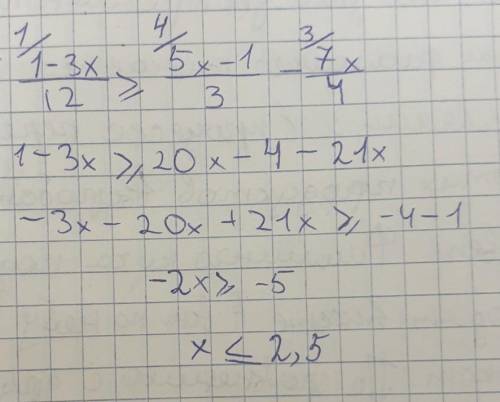 1/ 4/ 3/
(1-3x)/12 ⩾ (5x-1)/3 - 7x/4
1-3x ⩾ 20x-4-21x
-3x-20x+21x ⩾ -4-1
-2x ⩾ -5
x ≤ 2,5